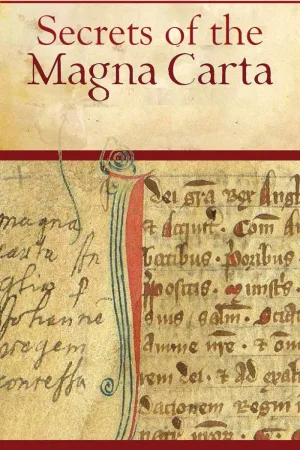 Secrets of the
Magna Carta
magna
carta In
glia p
Johanne
regem
concessa
Dei gra Rex Angl
et Aquit . Com
batibus . Prioribus
positis . Minist
suis salm . Sciat
anime nre . et om
dei . et ad exalta
dationem Regni n